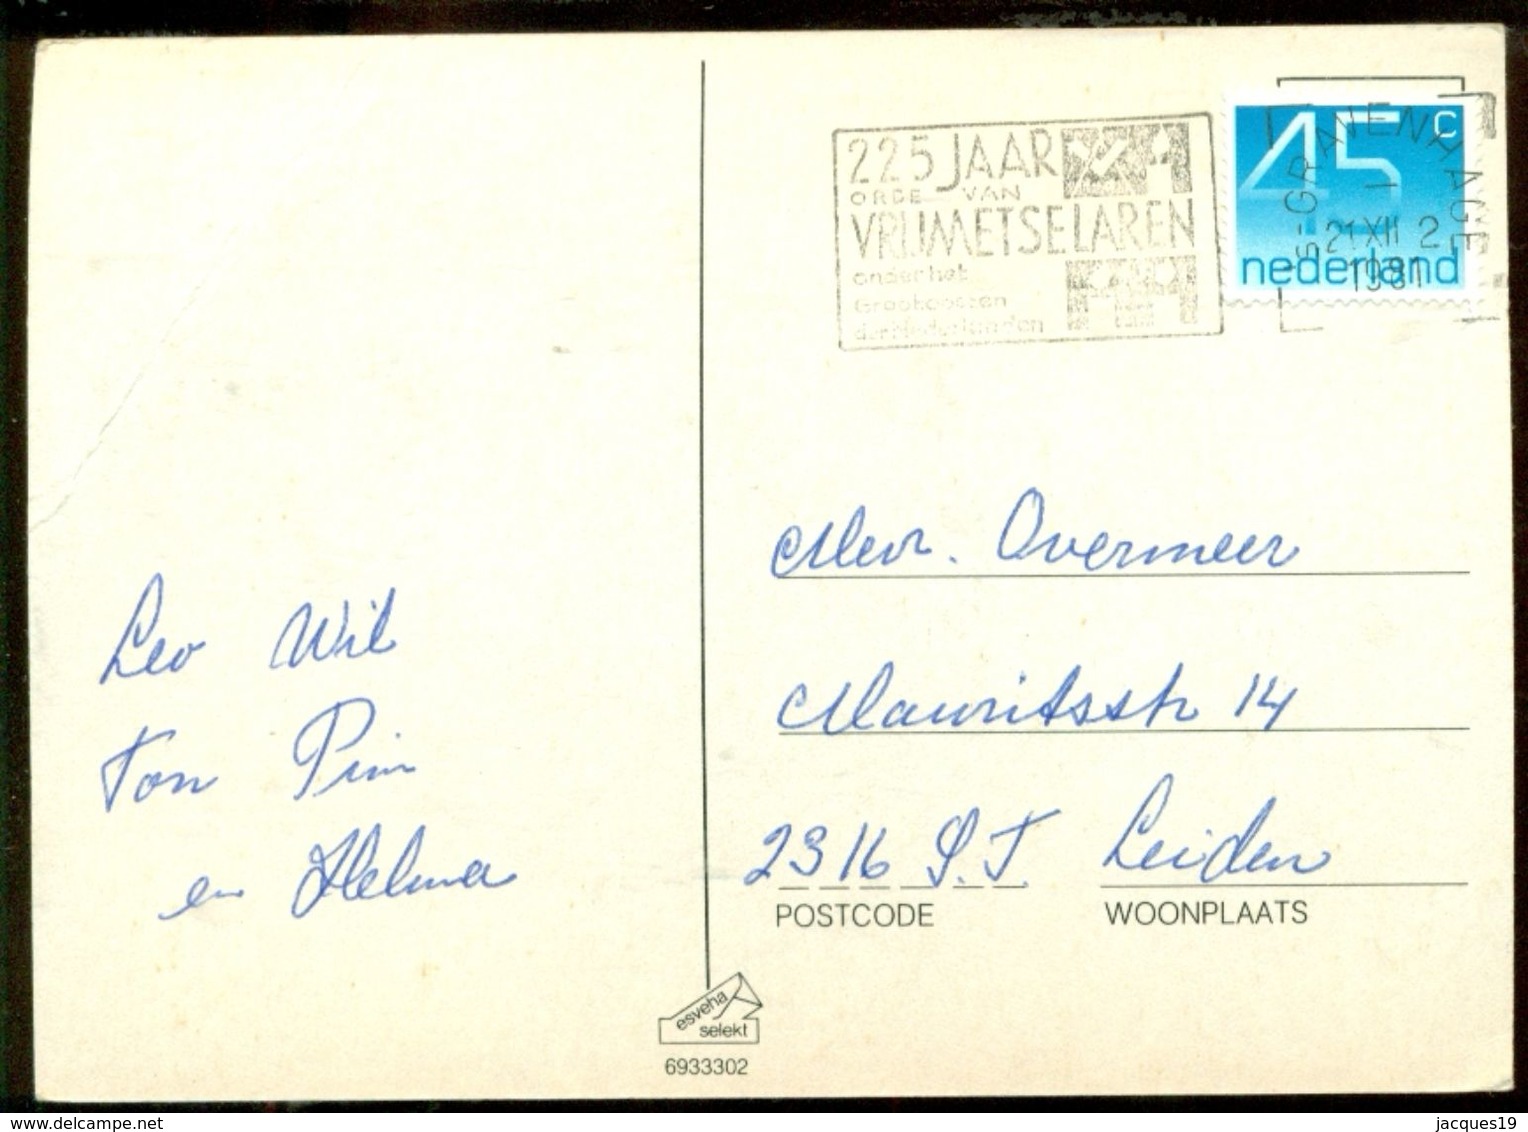 225 JAAR
ORDE VAN
VRIJMETSELAREN
onder het
Grootoosten
der Nederlanden
45 c
nederland
's-GRAVENHAGE
1
21 XII 2
1981
Mevr. Overmeer
Mauritsstr 14
2316 S.T. Leiden
POSTCODE WOONPLAATS
Leo Wil
Ton Pim
en Helma
esveha
selekt
6933302
delcampe.net
jacques19